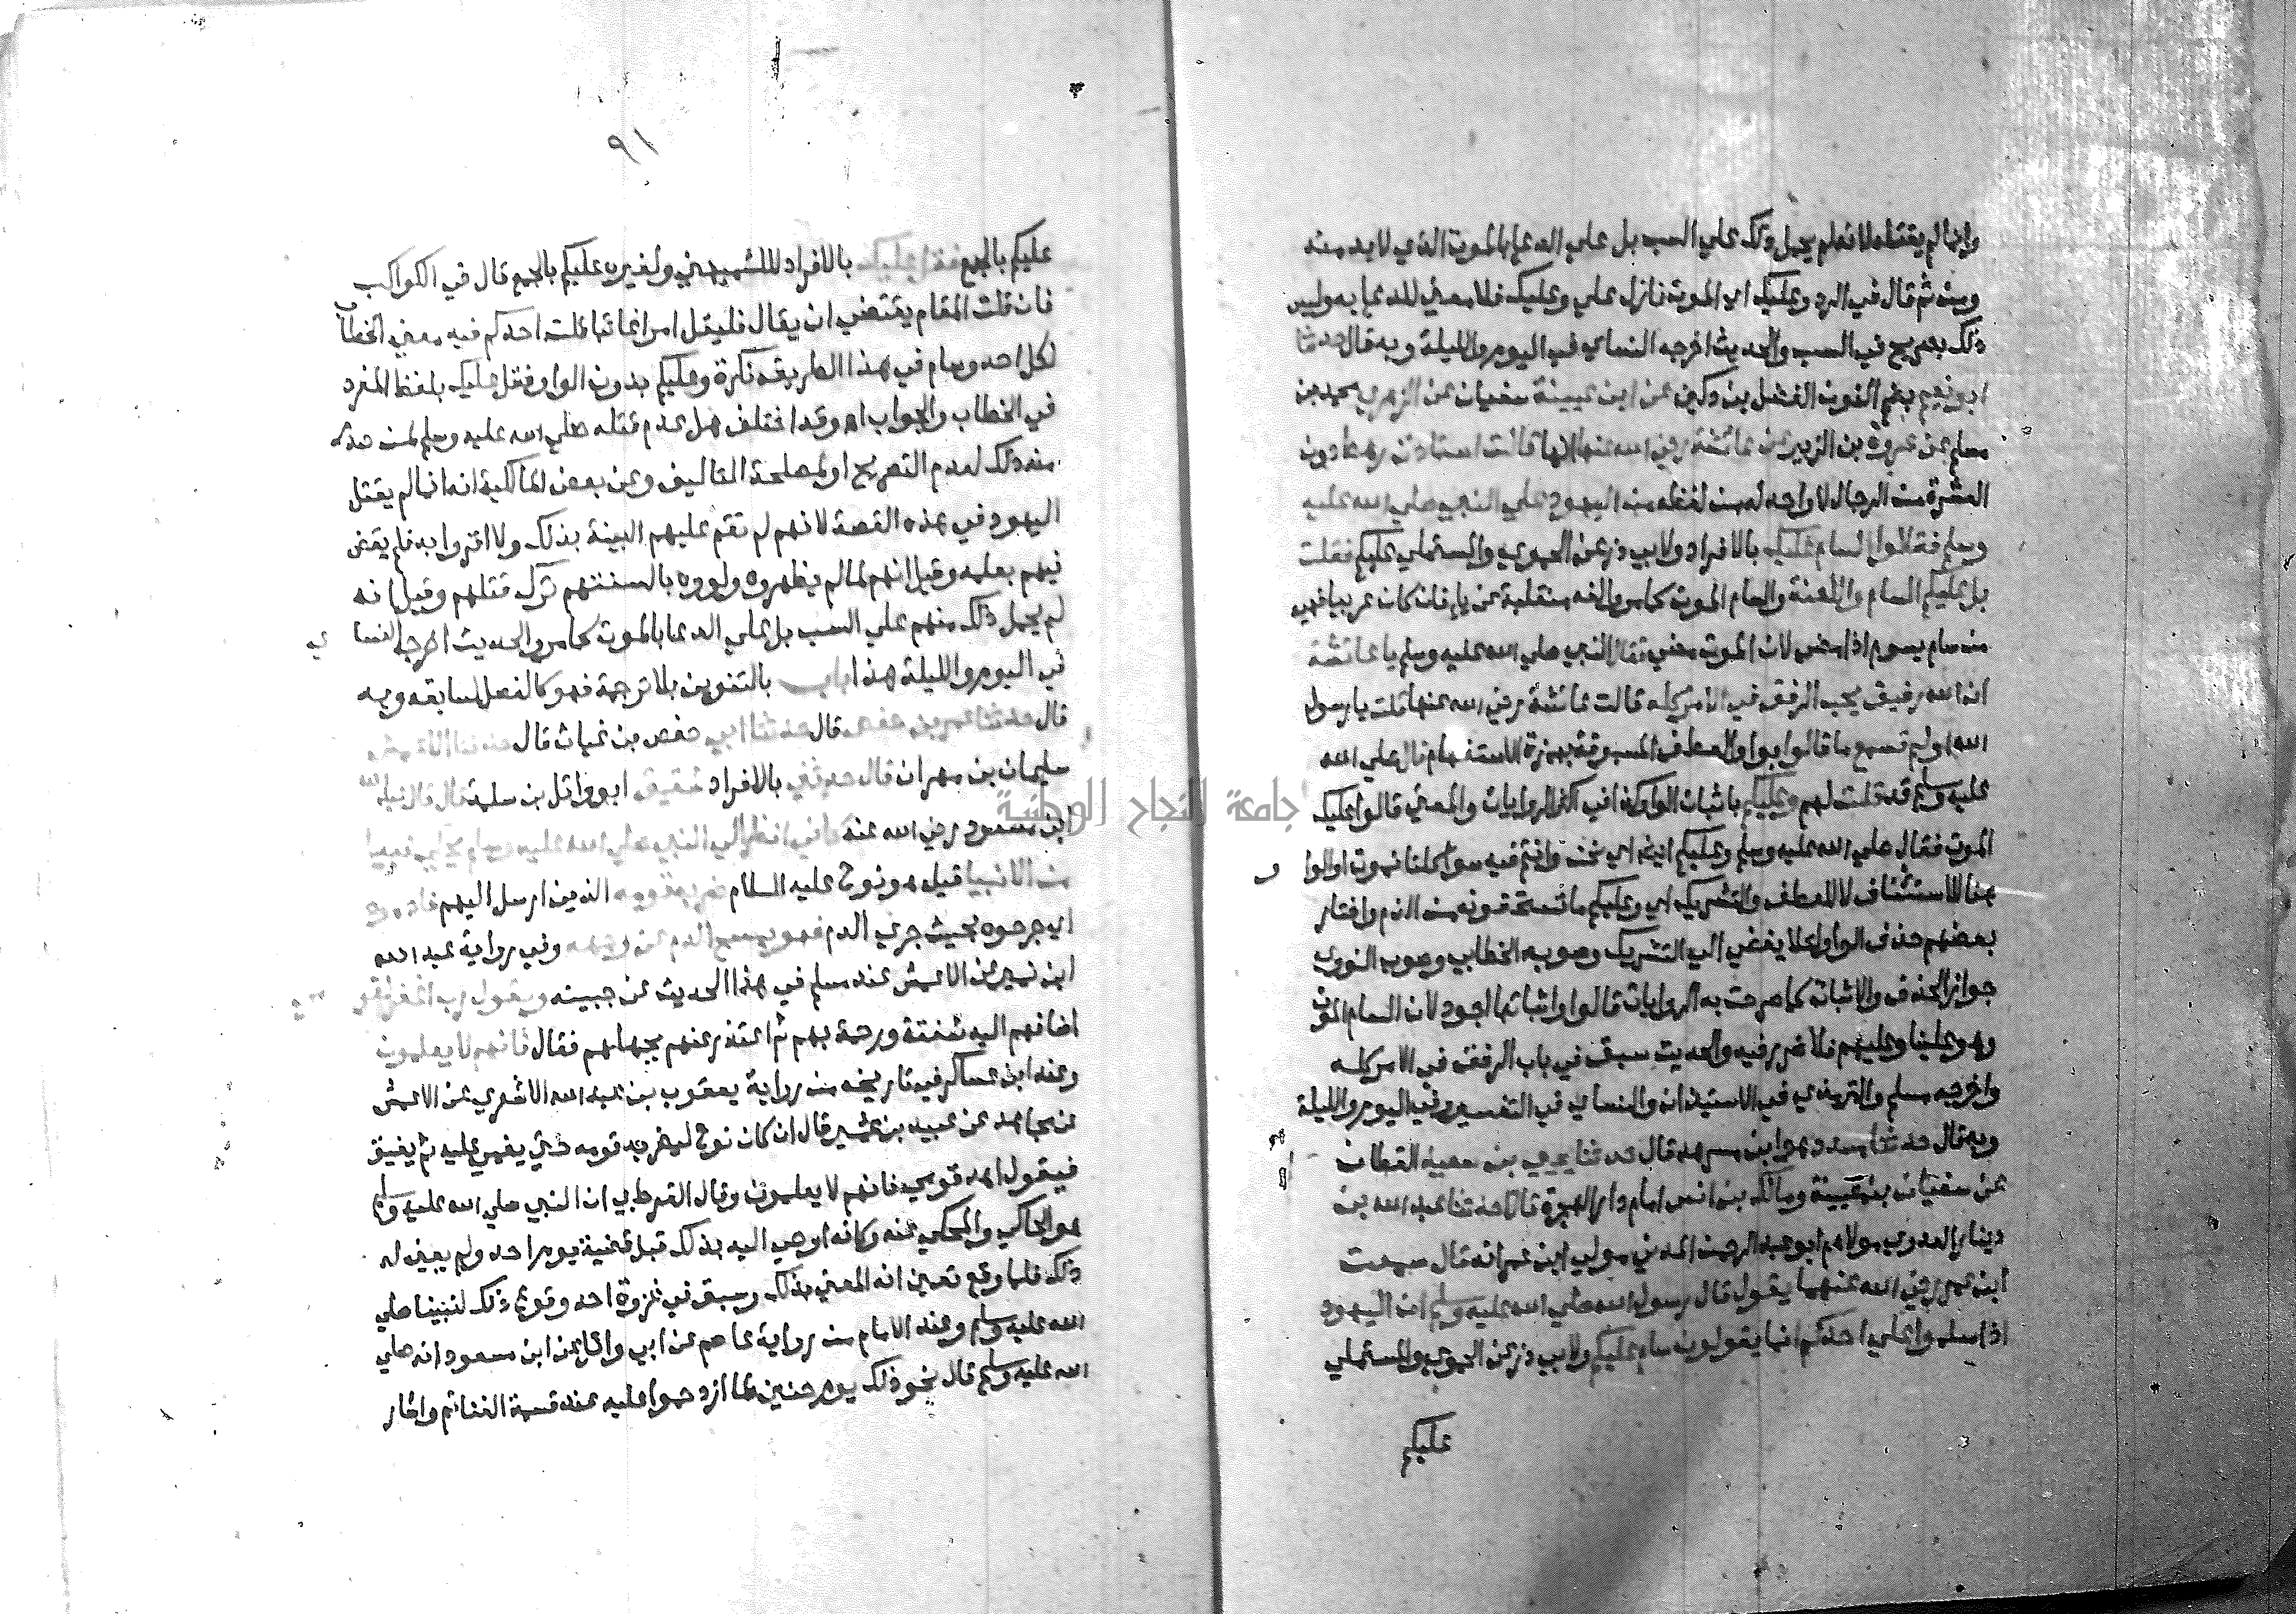 وانما لم يقتله لانه لم يحمل ذلك علي السب بل علي الدعا بالموت الذي لا بد منه
ومن ثم قال في الرد وعليك اي الموت نازل علي وعليك فلا معني للدعا به وليس
ذلك بصريح في السب والحديث اخرجه النساي في اليوم والليلة وبه قال حدثنا
ابو نعيم بضم النون الفضل بن دكين عن ابن عيينة سفيان عن الزهري محمد بن
مسلم عن عروة بن الزبير عن عائشة رضي الله عنها انها قالت استاذن رهط دون
العشرة من الرجال لا واحد له من لفظه من اليهود علي النبي صلي الله عليه
وسلم فقالوا السام عليك بالافراد ولابي ذر عن الحموي والمستملي عليكم فقلت
بل عليكم السام واللعنة والسام الموت كما مر والفه منقلبة عن يا فان كان عربيا فهو
من سام يسوم اذا مضي لان الموت مضي فقال النبي صلي الله عليه وسلم يا عائشة
ان الله رفيق يحب الرفق في الامر كله قالت عائشة رضي الله عنها قلت يا رسول
الله اولم تسمع ما قالوا بواو العطف المسبوقة بهمزة الاستفهام قال صلي الله
عليه وسلم قد قلت لهم وعليكم باثبات الواو كذا في اكثر الروايات والمعني قالوا عليك
الموت فقال صلي الله عليه وسلم وعليكم ايضا اي نحن وانتم فيه سوا كلنا نموت او الواو
هنا للاستئناف لا للعطف والتشريك اي وعليكم ما تستحقونه من الذم واختار
بعضهم حذف الواو لئلا يفضي الي التشريك وصوبه الخطابي وصوب النووي
جواز الحذف والاثبات كما صرحت به الروايات قالوا واثباتها اجود لان السام الموت
وهو علينا وعليهم فلا ضرر فيه والحديث سبق في باب الرفق في الامر كله
واخرجه مسلم والترمذي في الاستيذان والنساي في التفسير وفي اليوم والليلة
وبه قال حدثنا مسدد هو ابن مسرهد قال حدثنا يحيي بن سعيد القطان
عن سفيان بن عيينة ومالك بن انس امام دار الهجرة قالا حدثنا عبد الله بن
دينار العدوي مولاهم ابو عبد الرحمن المدني مولي ابن عمر انه قال سمعت
ابن عمر رضي الله عنهما يقول قال رسول الله صلي الله عليه وسلم ان اليهود
اذا سلموا علي احدكم انما يقولون سام عليكم ولابي ذر عن الحموي والمستملي
عليكم
٩١
عليكم بالجمع فقل عليك بالافراد للكشميهني ولغيره عليكم بالجمع قال في الكواكب
فان قلت المقام يقتضي ان يقال فليقل امرا غائبا قلت احدكم فيه معني الخطاب
لكل احد وسام في هذا الطريقه نكرة وعليكم بدون الواو فقل عليك بلفظ المفرد
في الخطاب والجواب اه وقد اختلف هل عدم قتله صلي الله عليه وسلم لمن صدر
منه ذلك لعدم التصريح او لمصلحة التاليف وعن بعض المالكية انه انما لم يقتل
اليهود في هذه القصة لانهم لم تقم عليهم البينة بذلك ولا اقروا به فلم يقض
فيهم بعلمه وقيل انهم لما لم يظهروه ولووه بالسنتهم ترك قتلهم وقيل انه
لم يحمل ذلك منهم علي السب بل علي الدعا بالموت كما مر والحديث اخرجه النساي
في اليوم والليلة هذا باب بالتنوين بلا ترجمة فهو كالفصل لسابقه وبه
قال حدثنا عمر بن حفص قال حدثنا ابي حفص بن غياث قال حدثنا الاعمش
سليمان بن مهران قال حدثني بالافراد شقيق ابو وائل بن سلمة قال قال عبد الله
ابن مسعود رضي الله عنه كاني انظر الي النبي صلي الله عليه وسلم يحكي نبيا
من الانبيا قيل هو نوح عليه السلام ضربه قومه الذين ارسل اليهم فادموه
اي جرحوه بحيث جري الدم فهو يمسح الدم عن وجهه وفي رواية عبد الله
ابن نمير عن الاعمش عند مسلم في هذا الحديث عن جبينه ويقول رب اغفر لقومي
اضافهم اليه شفقة ورحمة بهم ثم اعتذر عنهم بجهلهم فقال فانهم لا يعلمون
وعند ابن عساكر في تاريخه من رواية يعقوب بن عبد الله الاشعري عن الاعمش
عن مجاهد عن عبيد بن عمير قال ان كان نوح ليضربه قومه حتي يغمي عليه ثم يفيق
فيقول اهد قومي فانهم لا يعلمون وقال القرطبي ان النبي صلي الله عليه وسلم
هو الحاكي والمحكي عنه وكانه اوحي اليه بذلك قبل قضية يوم احد ولم يعين له
ذلك فلما وقع تعين انه المعني بذلك وسبق في غزوة احد وقوع ذلك لنبينا صلي
الله عليه وسلم وعند الامام من رواية عاصم عن ابي وائل عن ابن مسعود انه صلي
الله عليه وسلم قال نحو ذلك يوم حنين لما ازدحموا عليه عند قسمة الغنائم واشار
جامعة النجاح الوطنية